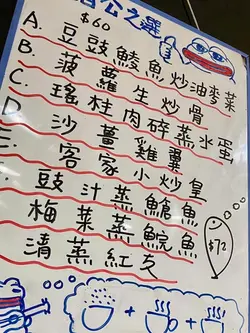 公之選
$60
A. 豆豉鯪魚炒油麥菜
B. 菠蘿生炒骨
C. 瑤柱肉碎蒸水蛋
D 沙薑雞翼
E. 客家小炒皇
豉汁蒸鯧魚
梅菜蒸鯇魚
清蒸紅友
$72